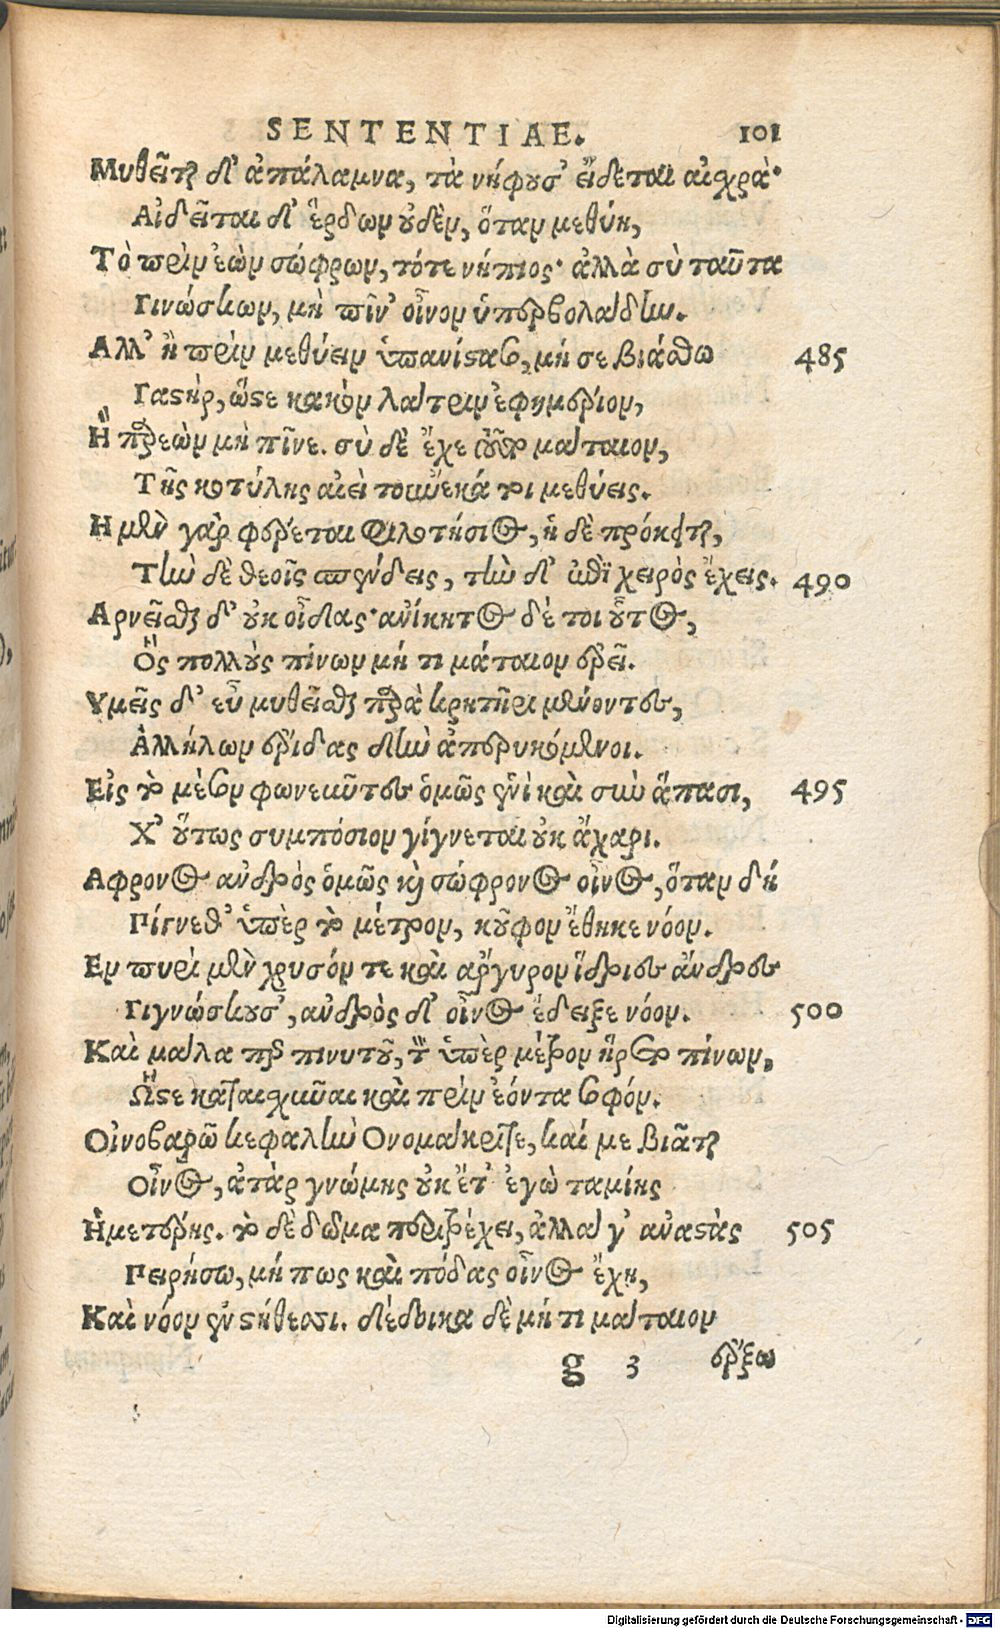 SENTENTIAE. 101
Μυθεῖται δ' ἀπάλαμνα, τὰ νήφουσ' εἴδεται αἰσχρὰ·
Αἰδεῖται δ' ἔρδων οὐδὲν, ὅταν μεθύῃ,
Τὸ πρὶν ἐὼν σώφρων, τότε νήπιος· ἀλλὰ σὺ ταῦτα
Γινώσκων, μὴ πῖν' οἶνον ὑπερβολάδην.
Ἀλλ' ἢ πρὶν μεθύειν ὑπανίστασο, μή σε βιάσθω 485
Γαστὴρ, ὥστε κακὸν λάτριν ἐφημέριον,
Ἢ παρεὼν μὴ πῖνε. σὺ δὲ ἔχε τοῦτο μάταιον,
Τῆς κοτύλης αἰεὶ τοὔνεκά τοι μεθύεις.
Η μὲν γὰρ φέρεται φιλοτήσιος, ἡ δὲ πρόκειται,
Τὴν δὲ θεοῖς σπένδεις, τὴν δ' ἐπὶ χειρὸς ἔχεις. 490
Αρνεῖσθαι δ' οὐκ οἶδας· ἀνίκητος δέ τοι οὗτος,
Ὃς πολλοὺς πίνων μή τι μάταιον ἐρεῖ.
Υμεῖς δ' εὖ μυθεῖσθε παρὰ κρητῆρι μένοντες,
Ἀλλήλων ἔριδας δὴν ἀπερυκόμενοι.
Εἰς τὸ μέσον φωνεῦντες ὁμῶς ἑνὶ καὶ συνάπασι, 495
Χ' οὕτως συμπόσιον γίγνεται οὐκ ἄχαρι.
Αφρονος ἀνδρὸς ὁμῶς καὶ σώφρονος οἶνος, ὅταν δή
Πίνεθ' ὑπὲρ τὸ μέτρον, κοῦφον ἔθηκε νόον.
Εν πυρὶ μὲν χρυσόν τε καὶ ἄργυρον ἴδριες ἄνδρες
Γιγνώσκουσ', ἀνδρὸς δ' οἶνος ἔδειξε νόον. 500
Καὶ μάλα περ πινυτοῦ, τὸν ὑπὲρ μέτρον ἤρετο πίνων,
Ὥστε καταισχῦναι καὶ πρὶν ἐόντα σοφόν.
Οἰνοβαρῶ κεφαλὴν Ονομάκριτε, καί με βιᾶται
Οἶνος, ἀτὰρ γνώμης οὐκ ἔτ' ἐγὼ ταμίης
Ἡμετέρης. τὸ δὲ δῶμα περιτρέχει, ἀλλά γ' ἀναστὰς 505
Πειρήσω, μή πως καὶ πόδας οἶνος ἔχῃ,
Καὶ νόον ἐν στήθεσσι. δέδοικα δὲ μή τι μάταιον
g 3 ἔρξω
Digitalisierung gefördert durch die Deutsche Forschungsgemeinschaft - DFG